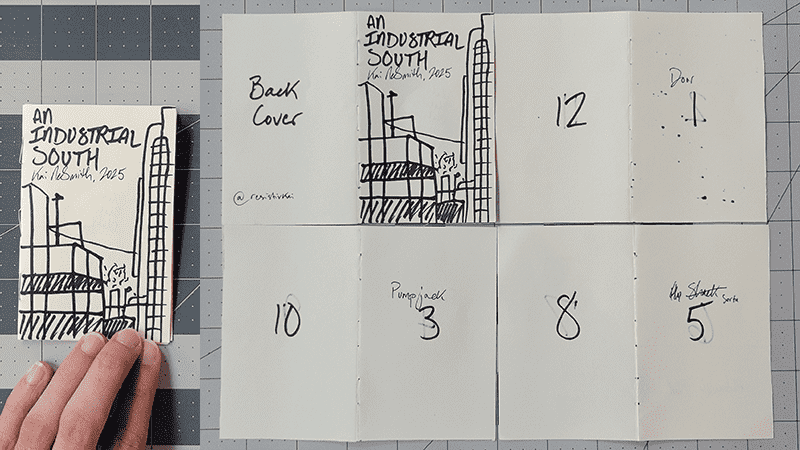 AN
INDUSTRIAL
SOUTH
Kai NeSmith, 2025
Back
Cover
@resistivkai
AN
INDUSTRIAL
SOUTH
Kai NeSmith, 2025
12
Door
1
10
Pumpjack
3
8
Sorta
5